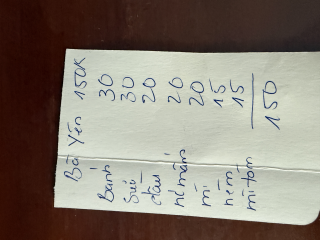 Bà Yến 150K
Bánh 30
Sữa 30
dầu 20
nc mắm 20
mì 20
nem 15
mì tôm 15
150